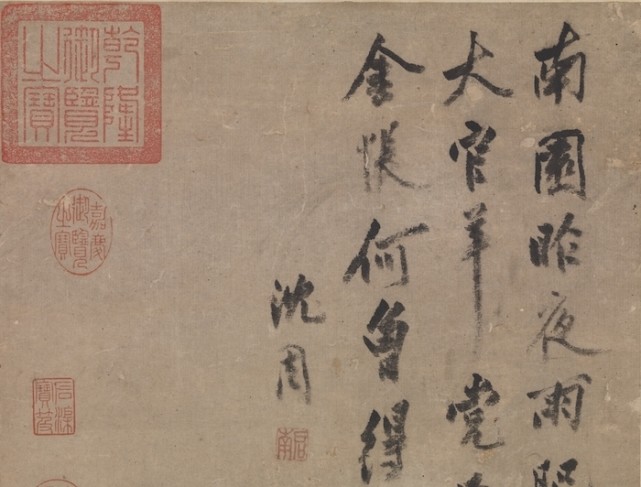 南園昨夜雨肥
大官羊党
金帳何曾得
沈周
啓南
乾隆御覽之寶
嘉慶御覽之寶
石渠寶笈